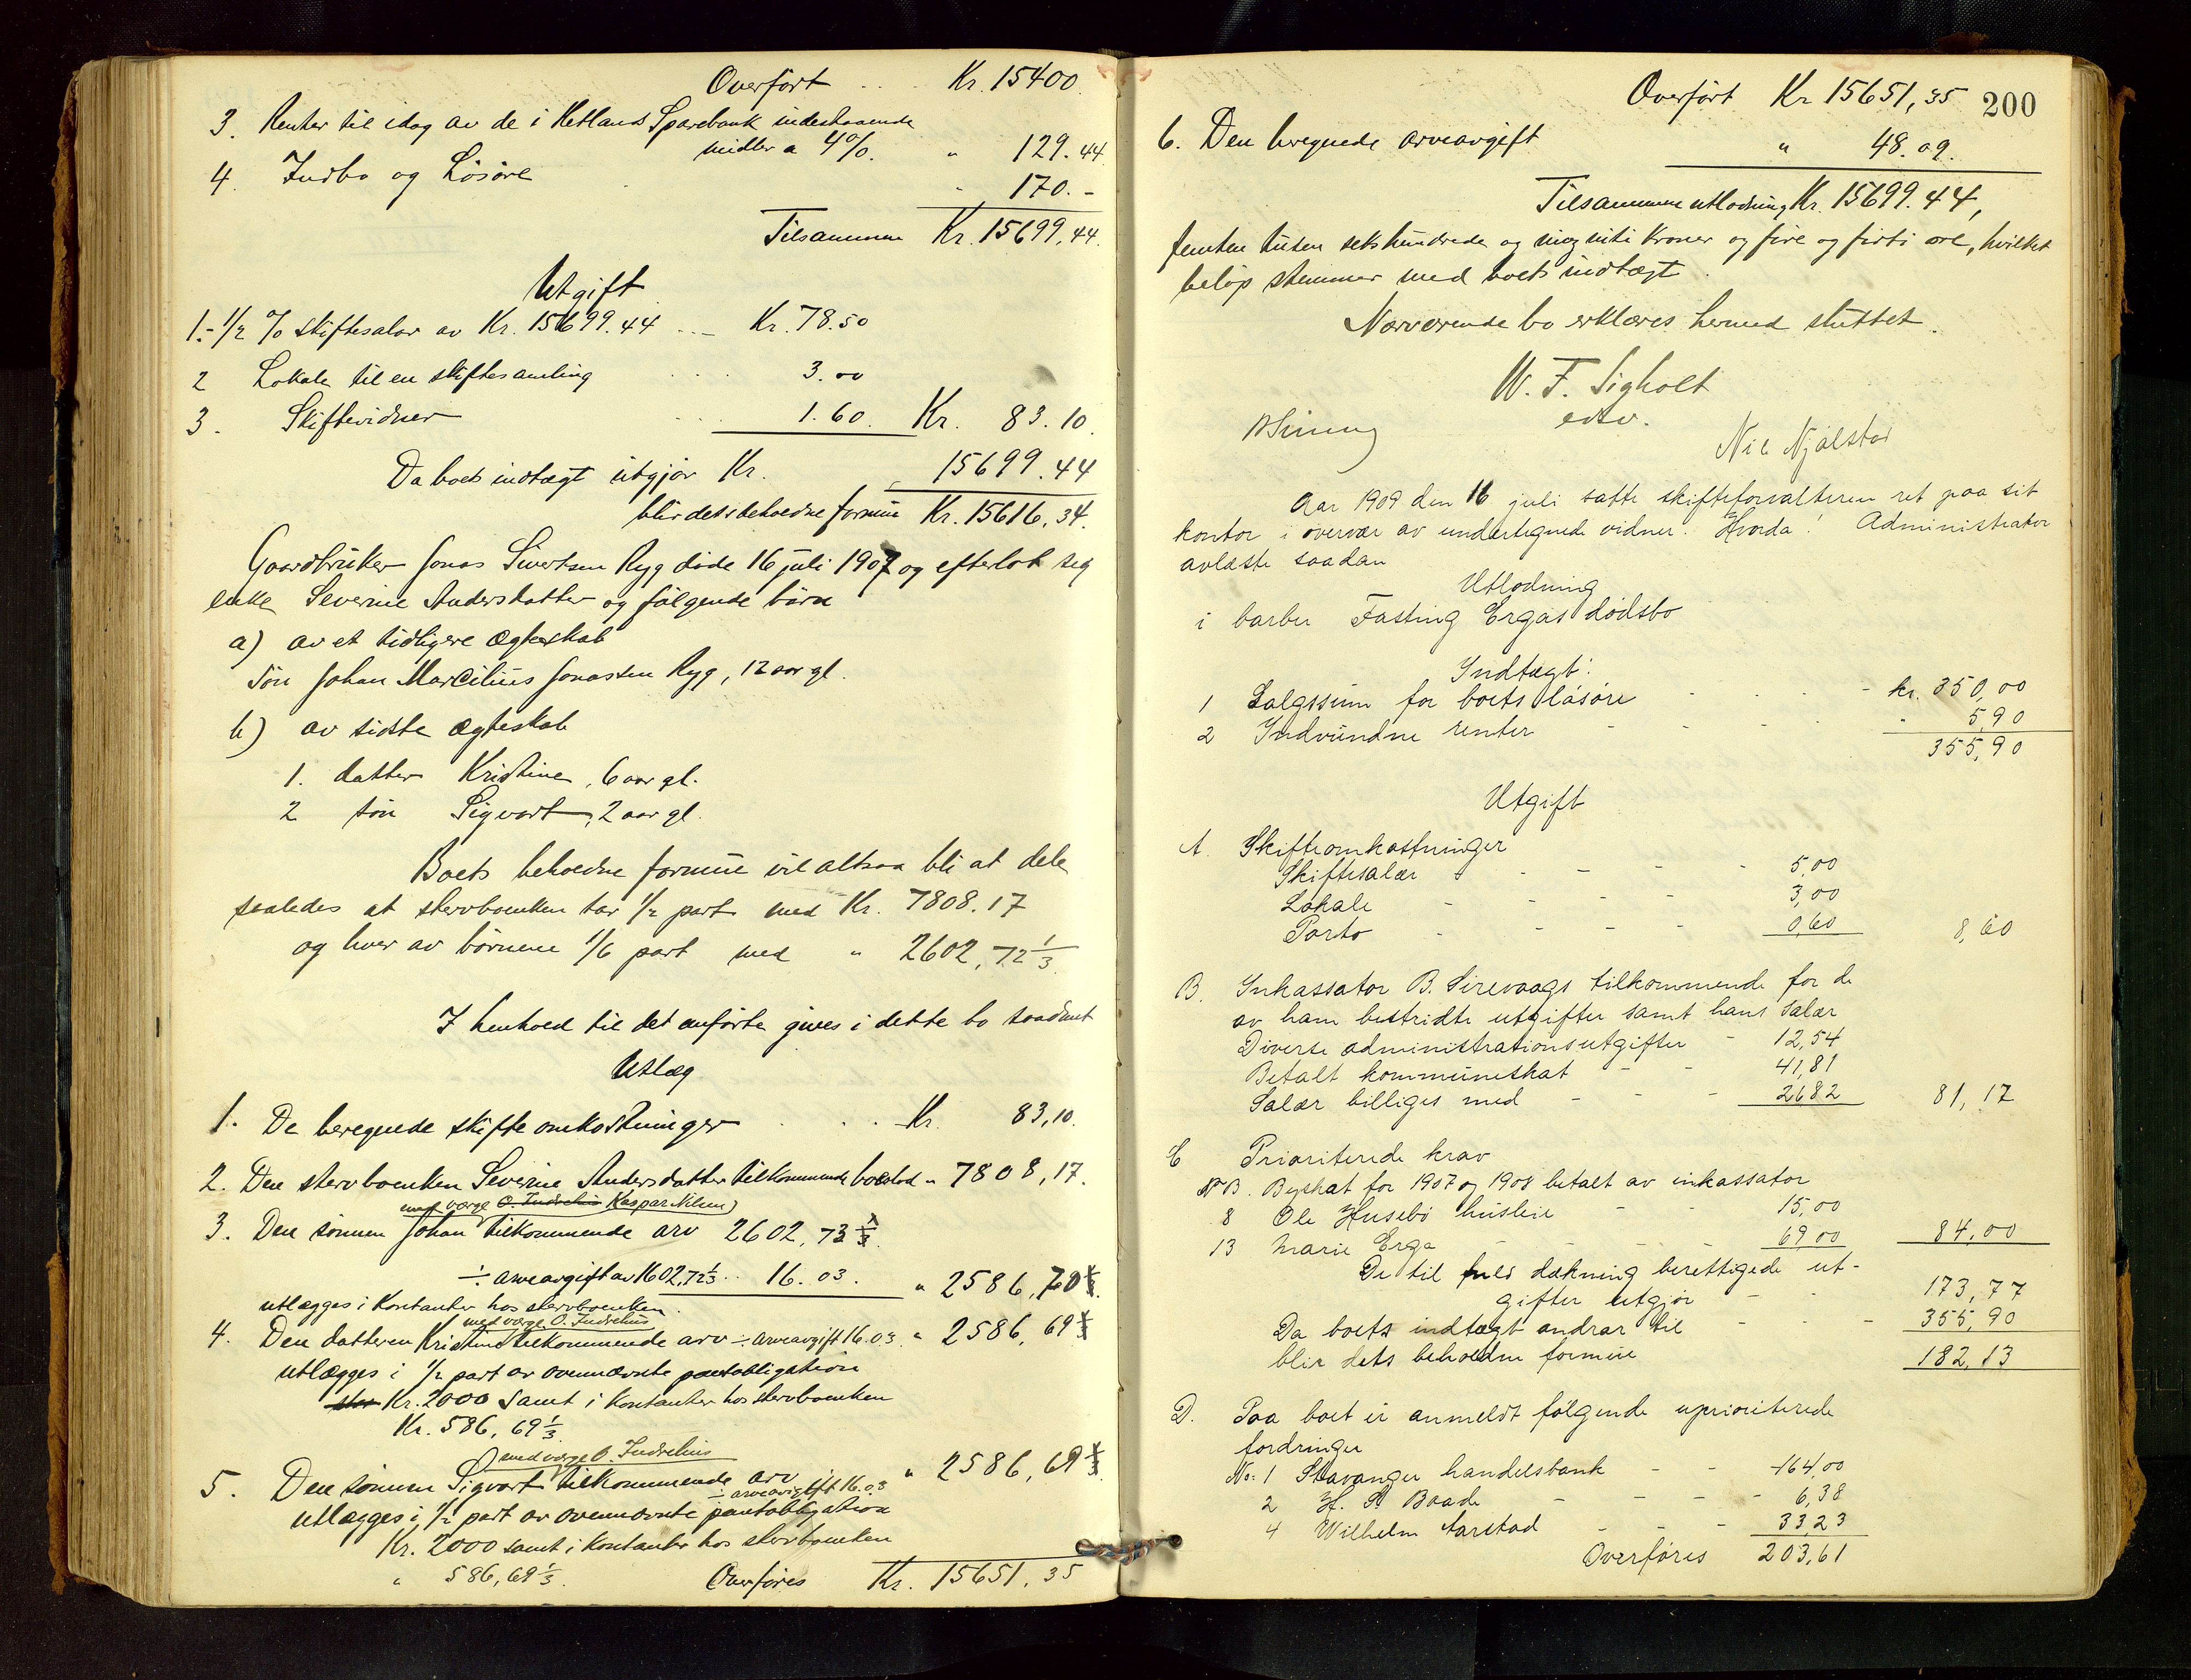 Overført . . . Kr. 15400.
3. Renter til idag av de i Hetlands Sparebank indestaaende
midler a 4%. " 129.44
4. Indbo og Løsøre " 170.-
Tilsammen Kr. 15699.44.
Utgift
1.- 1/2 % skiftesalær av Kr. 15699.44 . . . Kr. 78.50
2 Lokale til en skiftesamling . . . 3.00
3. Skiftevidner . . . 1.60. Kr. 83.10.
Da boets indtægt utgjør Kr. 15699.44
blir dets beholdne formue Kr. 15616.34.
Gaardbruker Jonas Sivertsen Ryg døde 16 juli 1907 og efterlot seg
enke Severine Andersdatter og følgende børn
a) av et tidligere ægteskab
Søn Johan Marcilius Jonassen Ryg, 12 aar gl.
b) av sidste ægteskab
1. datter Kristine, 6 aar gl.
2 søn Sigvart, 2 aar gl.
Boets beholdne formue vil altsaa bli at dele
saaledes at stervboenken tar 1/2 part med Kr. 7808.17
og hver av børnene 1/6 part med " 2602,72 1/3
I henhold til det anførte gives i dette bo saadant
Utlæg
1. De beregnede skifteomkostninger . . . Kr. 83,10.
2. Den stervboenken Severine Andersdatter tilkommende boeslod " 7808,17.
med værge O. Indrelius Kaspar Nilsen)
3. Den sønnen Johan tilkommende arv 2602,73 1/3
÷ arveavgift av 1602,72 1/3 . . 16.03. " 2586,70
utlægges i Kontanter hos stervboenken.
med værge O. Indrelius
4. Den datteren Kristine tilkommende arv ÷ arveavgift 16.03. " 2586,69 1/3
utlægges i 1/2 part av ovennævnte pantobligation
stor Kr. 2000 samt i Kontanter hos stervboenken
Kr. 586,69 1/3.
med værge O. Indrelius
5. Den sønnen Sigvart tilkommende arv " 2586,69 1/3
÷ arveavgift 16.03
utlægges i 1/2 part av ovennævnte pantobligation
Kr. 2000 samt i Kontanter hos stervboenken
" 586,69 1/3. Overføres Kr. 15651.35
Overført Kr 15651,35 200
6. Den beregnede arveavgift " 48.09.
Tilsammen utlodning Kr. 15699.44,
femten tusen sekshundrede og niognitti kroner og fire og firti øre, hvilket
beløp stemmer med boets indtægt.
Nærværende bo erklæres hermed sluttet.
W. F. Sigholt
edsv.
Nic Njålstad
Aar 1909 den 16 juli satte skifteforvalteren ret paa sit
kontor i overvær av undertegnede vidner. Hvorda! Administrator
avlæste saadan
Utlodning
i barber Fasting Ergas dødsbo
Indtægt:
1 Salgssum for boets løsøre - - - kr. 350,00
2 Indvundne renter - - - " 5,90
355,90
Utgift
A. Skifteomkostninger
Skiftesalær - - - 5,00
Lokale - - - 3,00
Porto - - - 0,60 8,60
B. Inkassator B. Sirevaags tilkommende for de
av ham bestridte utgifter samt hans salær
Diverse administrationsutgifter - 12,54
Betalt kommuneskat - - 41,81
Salær billiges med - - - 26,82 81,17
C Prioriterede krav
NB. Byskat for 1907 og 1908 betalt av inkassator
8 Ole Husebø husleie - - 15,00
13 Marie Erga - - - 69,00 84,00
De til fuld dækning berettigede ut-
gifter utgjør - - 173,77
Da boets indtægt andrar til - - - 355,90
blir dets beholdne formue 182,13
D. Paa boet er anmeldt følgende uprioriterede
fordringer
No. 1 Stavanger handelsbank - - 164,00
2 H. A. Baade - - - 6,38
4 Wilhelm Aarstad - - - 33,23
Overføres 203,61